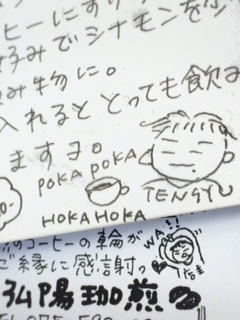 ーヒーにすり
好みでシナモンを少
み物に。
入れると とっても飲み
ますョ。
POKA POKA
TENGYU
HOKA HOKA
のコーヒーの輪が
ご縁に感謝っ
WA!!
弘陽珈煎